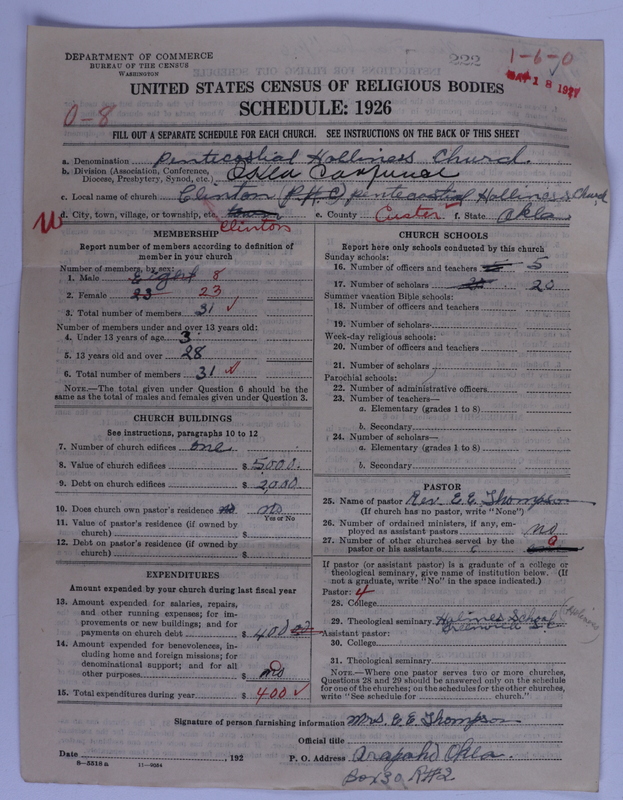 DEPARTMENT OF COMMERCE
BUREAU OF THE CENSUS
WASHINGTON
222
1-6-0
MAY 18 1927
UNITED STATES CENSUS OF RELIGIOUS BODIES
SCHEDULE: 1926
0-8
FILL OUT A SEPARATE SCHEDULE FOR EACH CHURCH. SEE INSTRUCTIONS ON THE BACK OF THIS SHEET
a. Denomination Pentecostial Holliness Church.
b. Division (Association, Conference, Diocese, Presbytery, Synod, etc.) Okla
c. Local name of church Clinton (P.H.C) pentecostial Holliness Church
d. City, town, village, or township, etc. town Clinton e. County Custer f. State Okla
MEMBERSHIP
Report number of members according to definition of
member in your church
Number of members, by sex:
1. Male Eight 8
2. Female 23 23
3. Total number of members 31 ✓
Number of members under and over 13 years old:
4. Under 13 years of age 3
5. 13 years old and over 28
6. Total number of members 31 ✓
NOTE.—The total given under Question 6 should be the
same as the total of males and females given under Question 3.
CHURCH BUILDINGS
See instructions, paragraphs 10 to 12
7. Number of church edifices one
8. Value of church edifices $ 5000.
9. Debt on church edifices $ 2,000
10. Does church own pastor's residence no no
Yes or No
11. Value of pastor's residence (if owned by
church) $
12. Debt on pastor's residence (if owned by
church) $
EXPENDITURES
Amount expended by your church during last fiscal year
13. Amount expended for salaries, repairs,
and other running expenses; for im-
provements or new buildings; and for
payments on church debt $ 400 00
14. Amount expended for benevolences, in-
cluding home and foreign missions; for
denominational support; and for all
other purposes $ no
15. Total expenditures during year $ 400 ✓
CHURCH SCHOOLS
Report here only schools conducted by this church
Sunday schools:
16. Number of officers and teachers 5
17. Number of scholars 20 20
Summer vacation Bible schools:
18. Number of officers and teachers
19. Number of scholars
Week-day religious schools:
20. Number of officers and teachers
21. Number of scholars
Parochial schools:
22. Number of administrative officers
23. Number of teachers—
a. Elementary (grades 1 to 8)
b. Secondary
24. Number of scholars—
a. Elementary (grades 1 to 8)
b. Secondary
PASTOR
25. Name of pastor Rev. E. E. Thompson
(If church has no pastor, write "None")
26. Number of ordained ministers, if any, em-
ployed as assistant pastors no
27. Number of other churches served by the
pastor or his assistants
If pastor (or assistant pastor) is a graduate of a college or
theological seminary, give name of institution below. (If
not a graduate, write "No" in the space indicated.)
Pastor: 4
28. College
29. Theological seminary Holiness School
Greenville S.C.
Assistant pastor:
30. College
31. Theological seminary
NOTE.—Where one pastor serves two or more churches,
Questions 28 and 29 should be answered only on the schedule
for one of the churches; on the schedules for the other churches,
write "See schedule for church."
Signature of person furnishing information Mrs. E E Thompson
Official title
Date , 192 P. O. Address Arapaho Okla.
Box 30 R#2
8—5518 a 11—9054